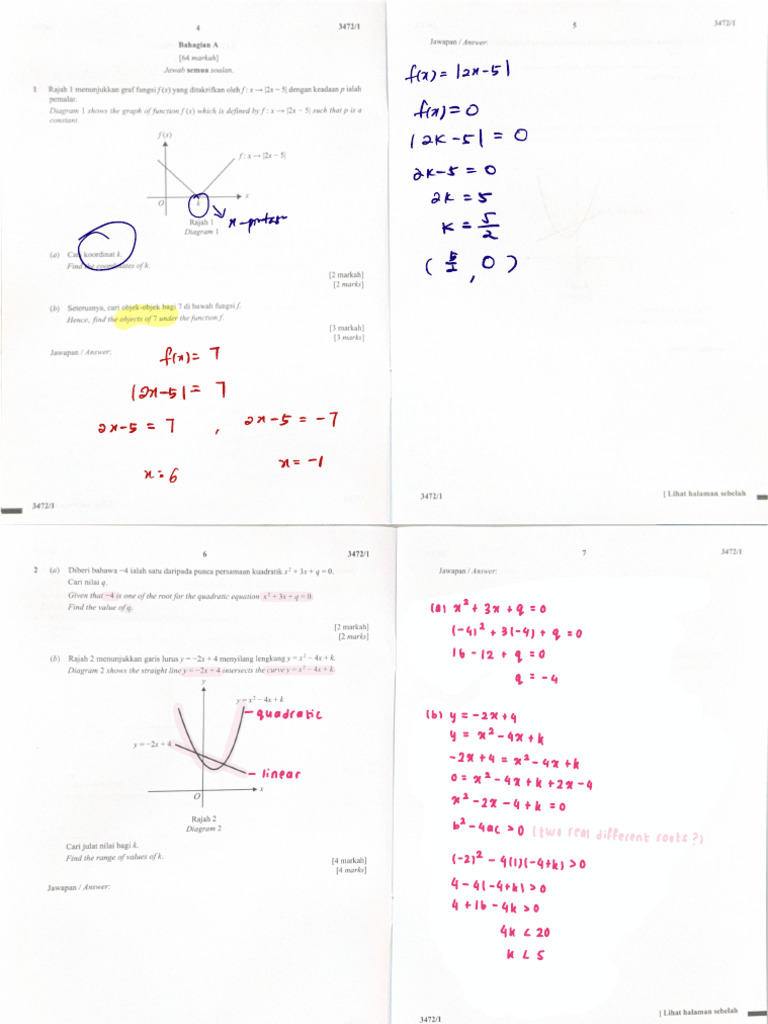 4
3472/1
Bahagian A
[64 markah]
Jawab semua soalan.
1 Rajah 1 menunjukkan graf fungsi f(x) yang ditakrifkan oleh f : x → |2x − 5| dengan keadaan p ialah
pemalar.
Diagram 1 shows the graph of function f (x) which is defined by f : x → |2x − 5| such that p is a
constant.
f(x)
f : x → |2x − 5|
O
k
x
x-pintasan
Rajah 1
Diagram 1
(a) Cari koordinat k.
Find the coordinates of k.
[2 markah]
[2 marks]
(b) Seterusnya, cari objek-objek bagi 7 di bawah fungsi f.
Hence, find the objects of 7 under the function f.
[3 markah]
[3 marks]
Jawapan / Answer:
f(x) = 7
|2x-5| = 7
2x-5 = 7 , 2x-5 = -7
x = 6
x = -1
3472/1
5
3472/1
Jawapan / Answer:
f(x) = |2x-5|
f(x) = 0
|2k-5| = 0
2k-5 = 0
2k = 5
k = 5/2
(5/2, 0)
3472/1
[ Lihat halaman sebelah
6
3472/1
2 (a) Diberi bahawa −4 ialah satu daripada punca persamaan kuadratik x² + 3x + q = 0.
Cari nilai q.
Given that −4 is one of the root for the quadratic equation x² + 3x + q = 0.
Find the value of q.
[2 markah]
[2 marks]
(b) Rajah 2 menunjukkan garis lurus y = −2x + 4 menyilang lengkung y = x² − 4x + k.
Diagram 2 shows the straight line y = −2x + 4 intersects the curve y = x² − 4x + k.
y
y = x² − 4x + k
quadratic
y = −2x + 4
linear
O
x
Rajah 2
Diagram 2
Cari julat nilai bagi k.
Find the range of values of k.
[4 markah]
[4 marks]
Jawapan / Answer:
7
3472/1
Jawapan / Answer:
(a) x² + 3x + q = 0
(-4)² + 3(-4) + q = 0
16 - 12 + q = 0
q = -4
(b) y = -2x + 4
y = x² - 4x + k
-2x + 4 = x² - 4x + k
0 = x² - 4x + k + 2x - 4
x² - 2x - 4 + k = 0
b² - 4ac > 0 (two real different roots?)
(-2)² - 4(1)(-4+k) > 0
4 - 4(-4+k) > 0
4 + 16 - 4k > 0
4k < 20
k < 5
3472/1
[ Lihat halaman sebelah